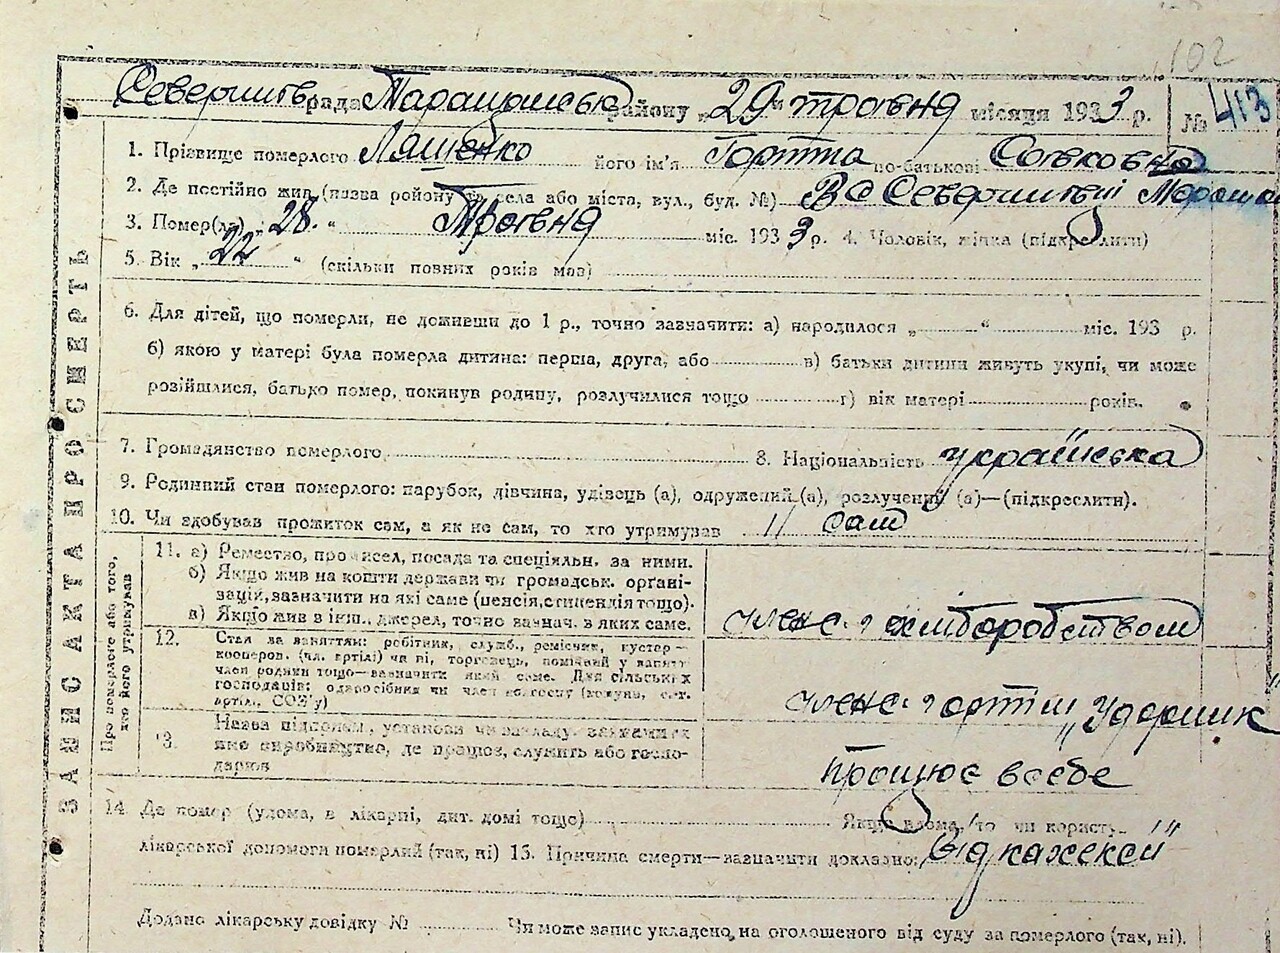 102
рада Таращанська району „29“ травня місяця 1933 р. № 413
1. Прізвище померлого Ляшенко його ім'я по-батькові
2. Де постійно жив (назва району та села або міста, вул., буд. №)
3. Помер(ла) „28.“ Травня міс. 1933 р. 4. Чоловік, жінка (підкреслити)
5. Вік „22“ (скільки повних років мав)
6. Для дітей, що померли, не доживши до 1 р., точно зазначити: а) народилося „ “ міс. 193 р.
б) якою у матері була померла дитина: перша, друга, або в) батьки дитини живуть укупі, чи може
розійшлися, батько помер, покинув родину, розлучилися тощо г) вік матері років.
7. Громадянство померлого 8. Національність українська
9. Родинний стан померлого: парубок, дівчина, удівець (а), одружений (а), розлучений (а)—(підкреслити).
10. Чи здобував прожиток сам, а як не сам, то хто утримував сам
ЗАПИС АКТА ПРО СМЕРТЬ
Про померлого або того,
хто його утримував
11. а) Ремество, промисел, посада та спеціяльн. за ними.
б) Якщо жив на кошти держави чи громадськ. органі-
зацій, зазначити на які саме (пенсія, стипендія тощо).
в) Якщо жив з інш. джерел, точно зазнач. з яких саме.
хліборобством
12. Стан за заняттям: робітник, служб., ремісник, кустар—
кооперов. (чл. артілі) чи ні, торговець, помічний у занятт
член родини тощо—зазначити який саме. Для сільських
господарів: одноосібник чи член колгоспу (комуна, с.-г.
артіль, СОЗ'у)
член. „Ударник
13. Назва підприєм., установи чи закладу, зазначити
яке виробництво, де працює, служить або госпо-
дарює
Працює в себе
14. Де помер (удома, в лікарні, дит. домі тощо) Якщо вдома, то чи корист.
лікарської допомоги померлий (так, ні) 15. Причина смерти—зазначити докладно: Від кахексії
Додано лікарську довідку № Чи може запис укладено, на оголошеного від суду за померлого (так, ні).